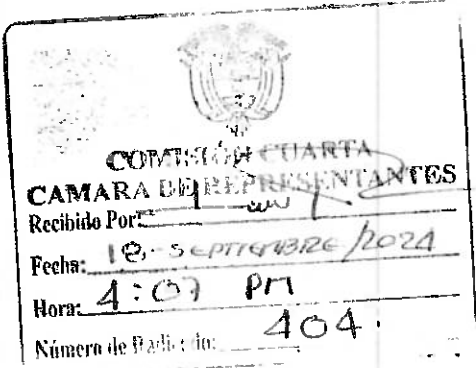 COMISIÓN CUARTA
CAMARA DE REPRESENTANTES
Recibido Por:
Fecha: SEPTIEMBRE/2024
Hora: 4:07 PM
Número de Radicado: 404.